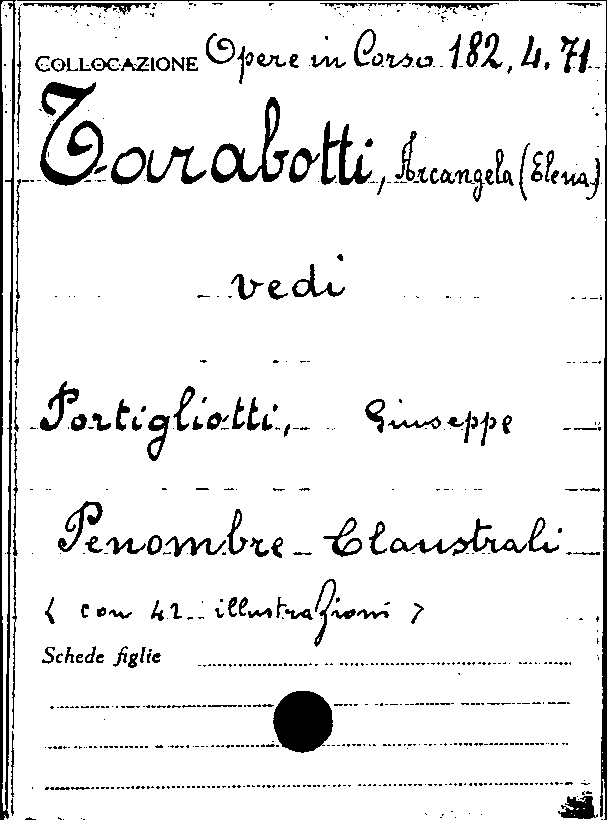 COLLOCAZIONE Opere in Corso 182.4.71
Tarabotti, Arcangela (Elena)
vedi
Portigliotti, Giuseppe
Penombre Claustrali
< con 42 illustrazioni >
Schede figlie